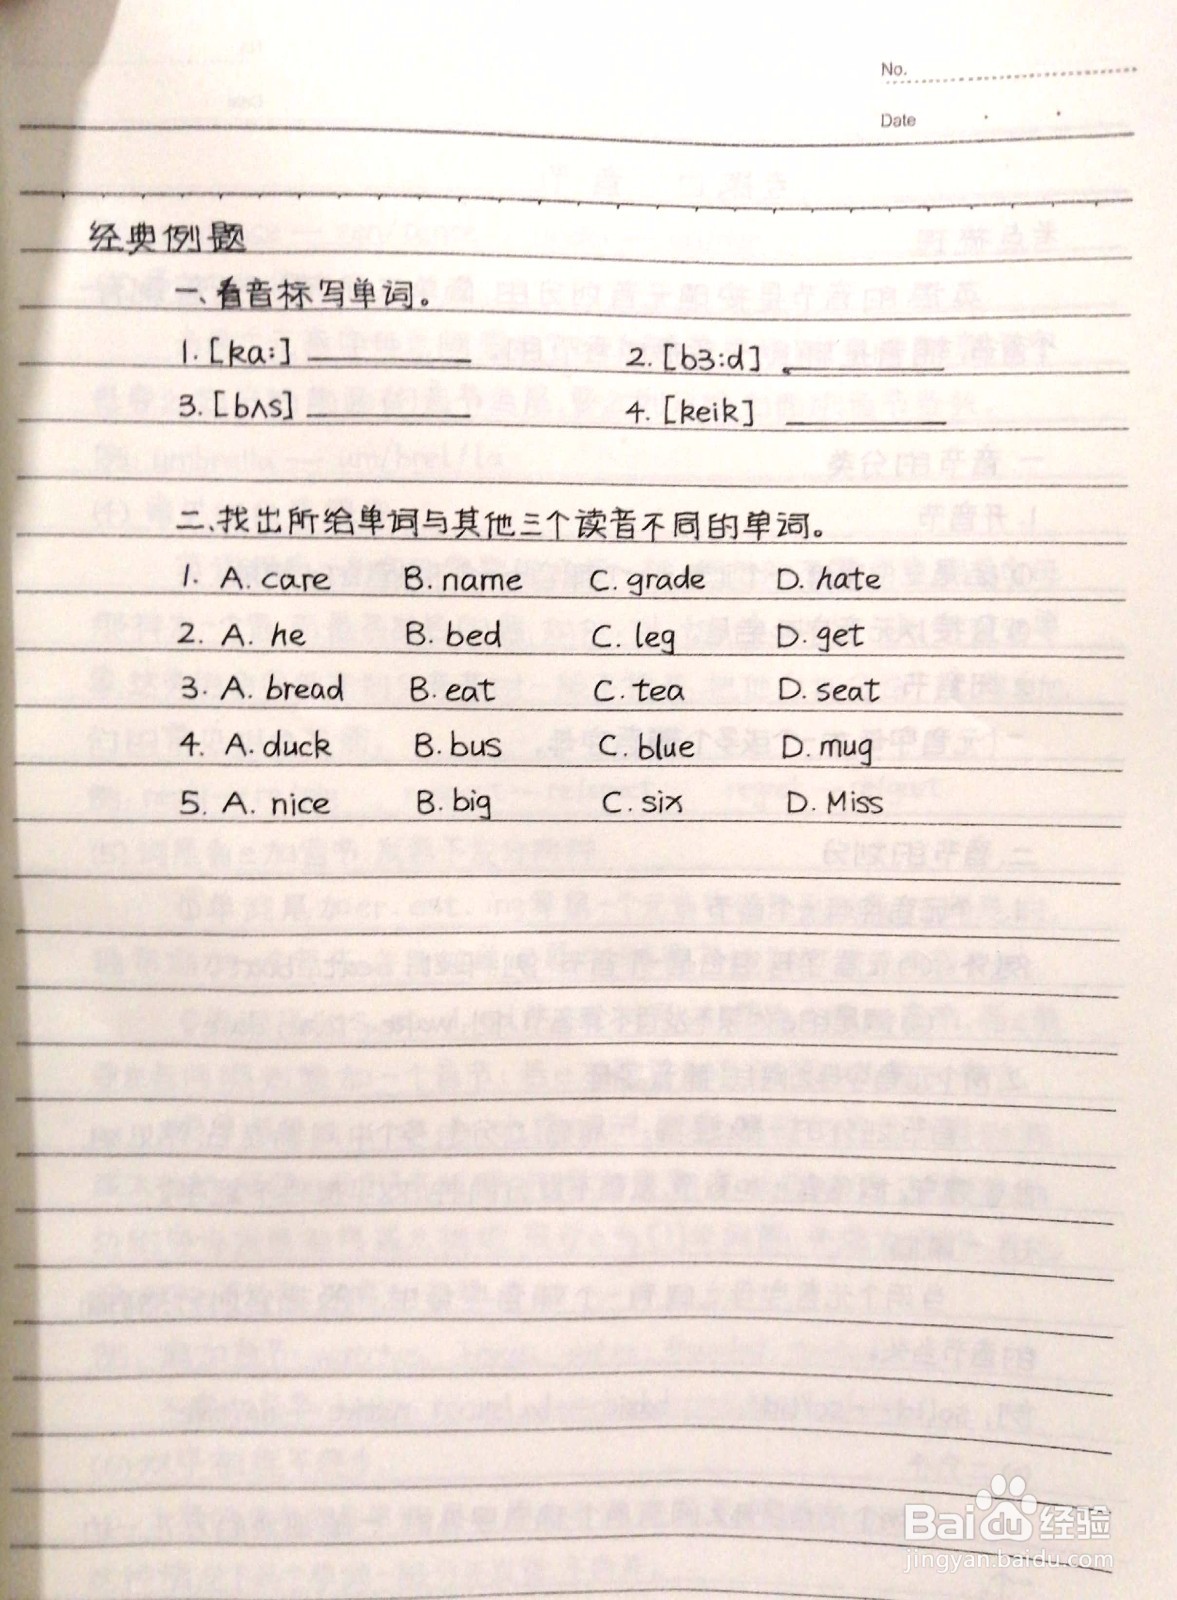 No.
Date
经典例题
一、看音标写单词。
1. [kɑ:] ________ 2. [bɜ:d] ________
3. [bʌs] ________ 4. [keik] ________
二、找出所给单词与其他三个读音不同的单词。
1. A. care B. name C. grade D. hate
2. A. he B. bed C. leg D. get
3. A. bread B. eat C. tea D. seat
4. A. duck B. bus C. blue D. mug
5. A. nice B. big C. six D. Miss
Baidu 经验
jingyan.baidu.com